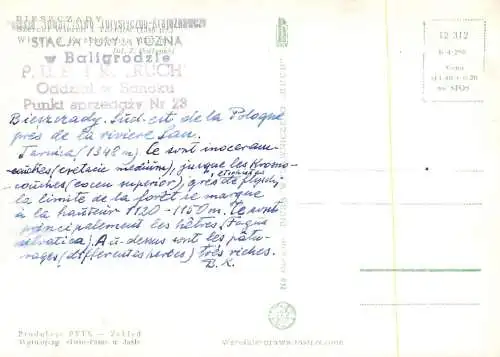 BIESZCZADY
STACJA TURYSTYCZNA
w Baligrodzie
P.U.P.i K. „RUCH"
Oddział w Sanoku
Punkt sprzedaży Nr 23
Bieszczady. Sud-est de la Pologne
près de la rivière San.
Tarnica (1348 m) Ce sont inoceram-
couches (cretaire medium), jusque les Krosno-
couches (eocen superior), grès et flysch
la limite de la forêt se marque
à la hauteur 1120-1150 m. Ce sont
principalement les hêtres (Fagus
silvatica). Au-dessus sont les pâtu-
rages (differentes herbes) très riches.
B. K.
12 312
B-4-290
Cena
zł 1.40 + 0.20
na SFOS
Produkcja PTTK — Zakład
Wszelkie prawa zastrzeżone